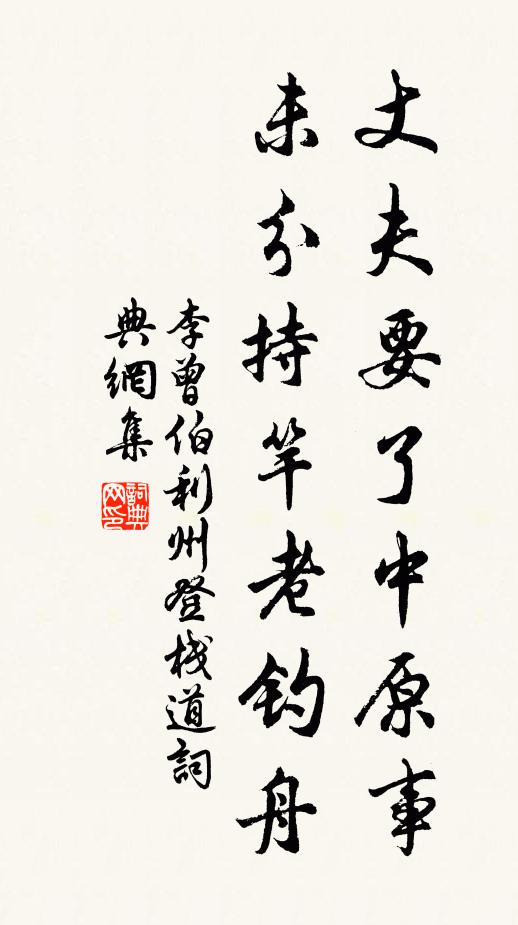 丈夫要了中原事
未分持竿老钓舟
李曾伯利州登栈道詞
典網集
詞典网印